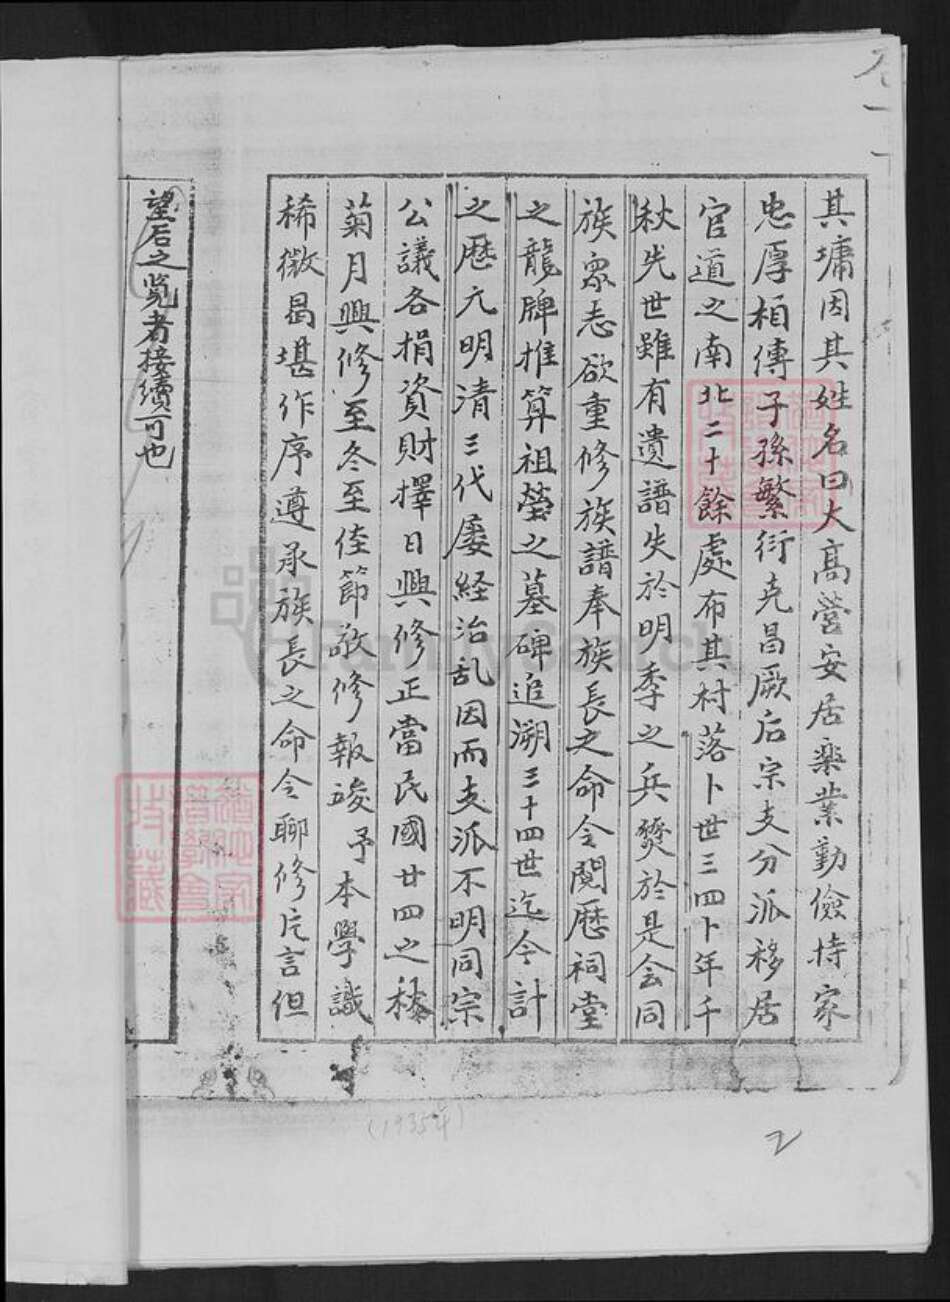 其墉因其姓名曰大高营安居楽業勤儉持家
忠厚相傳子孫繁衍克昌厥后宗支分派移居
官道之南北二十餘處布其村落卜世三四卜年千
秋先世雖有遺譜失於明季之兵燹於是会同
族眾志欲重修族譜奉族長之命令閱歷祠堂
之龍牌推算祖塋之墓碑追溯三十四世迄今計
之歷元明清三代屢経治乱因而支派不明同宗
公議各捐資財擇日興修正當民國廿四之秋
菊月興修至冬至佳節敬修報竣予本學識
稀微曷堪作序遵承族長之命令聊修片言但
望后之览者接續可也
(1935年)
2
FamilySearch